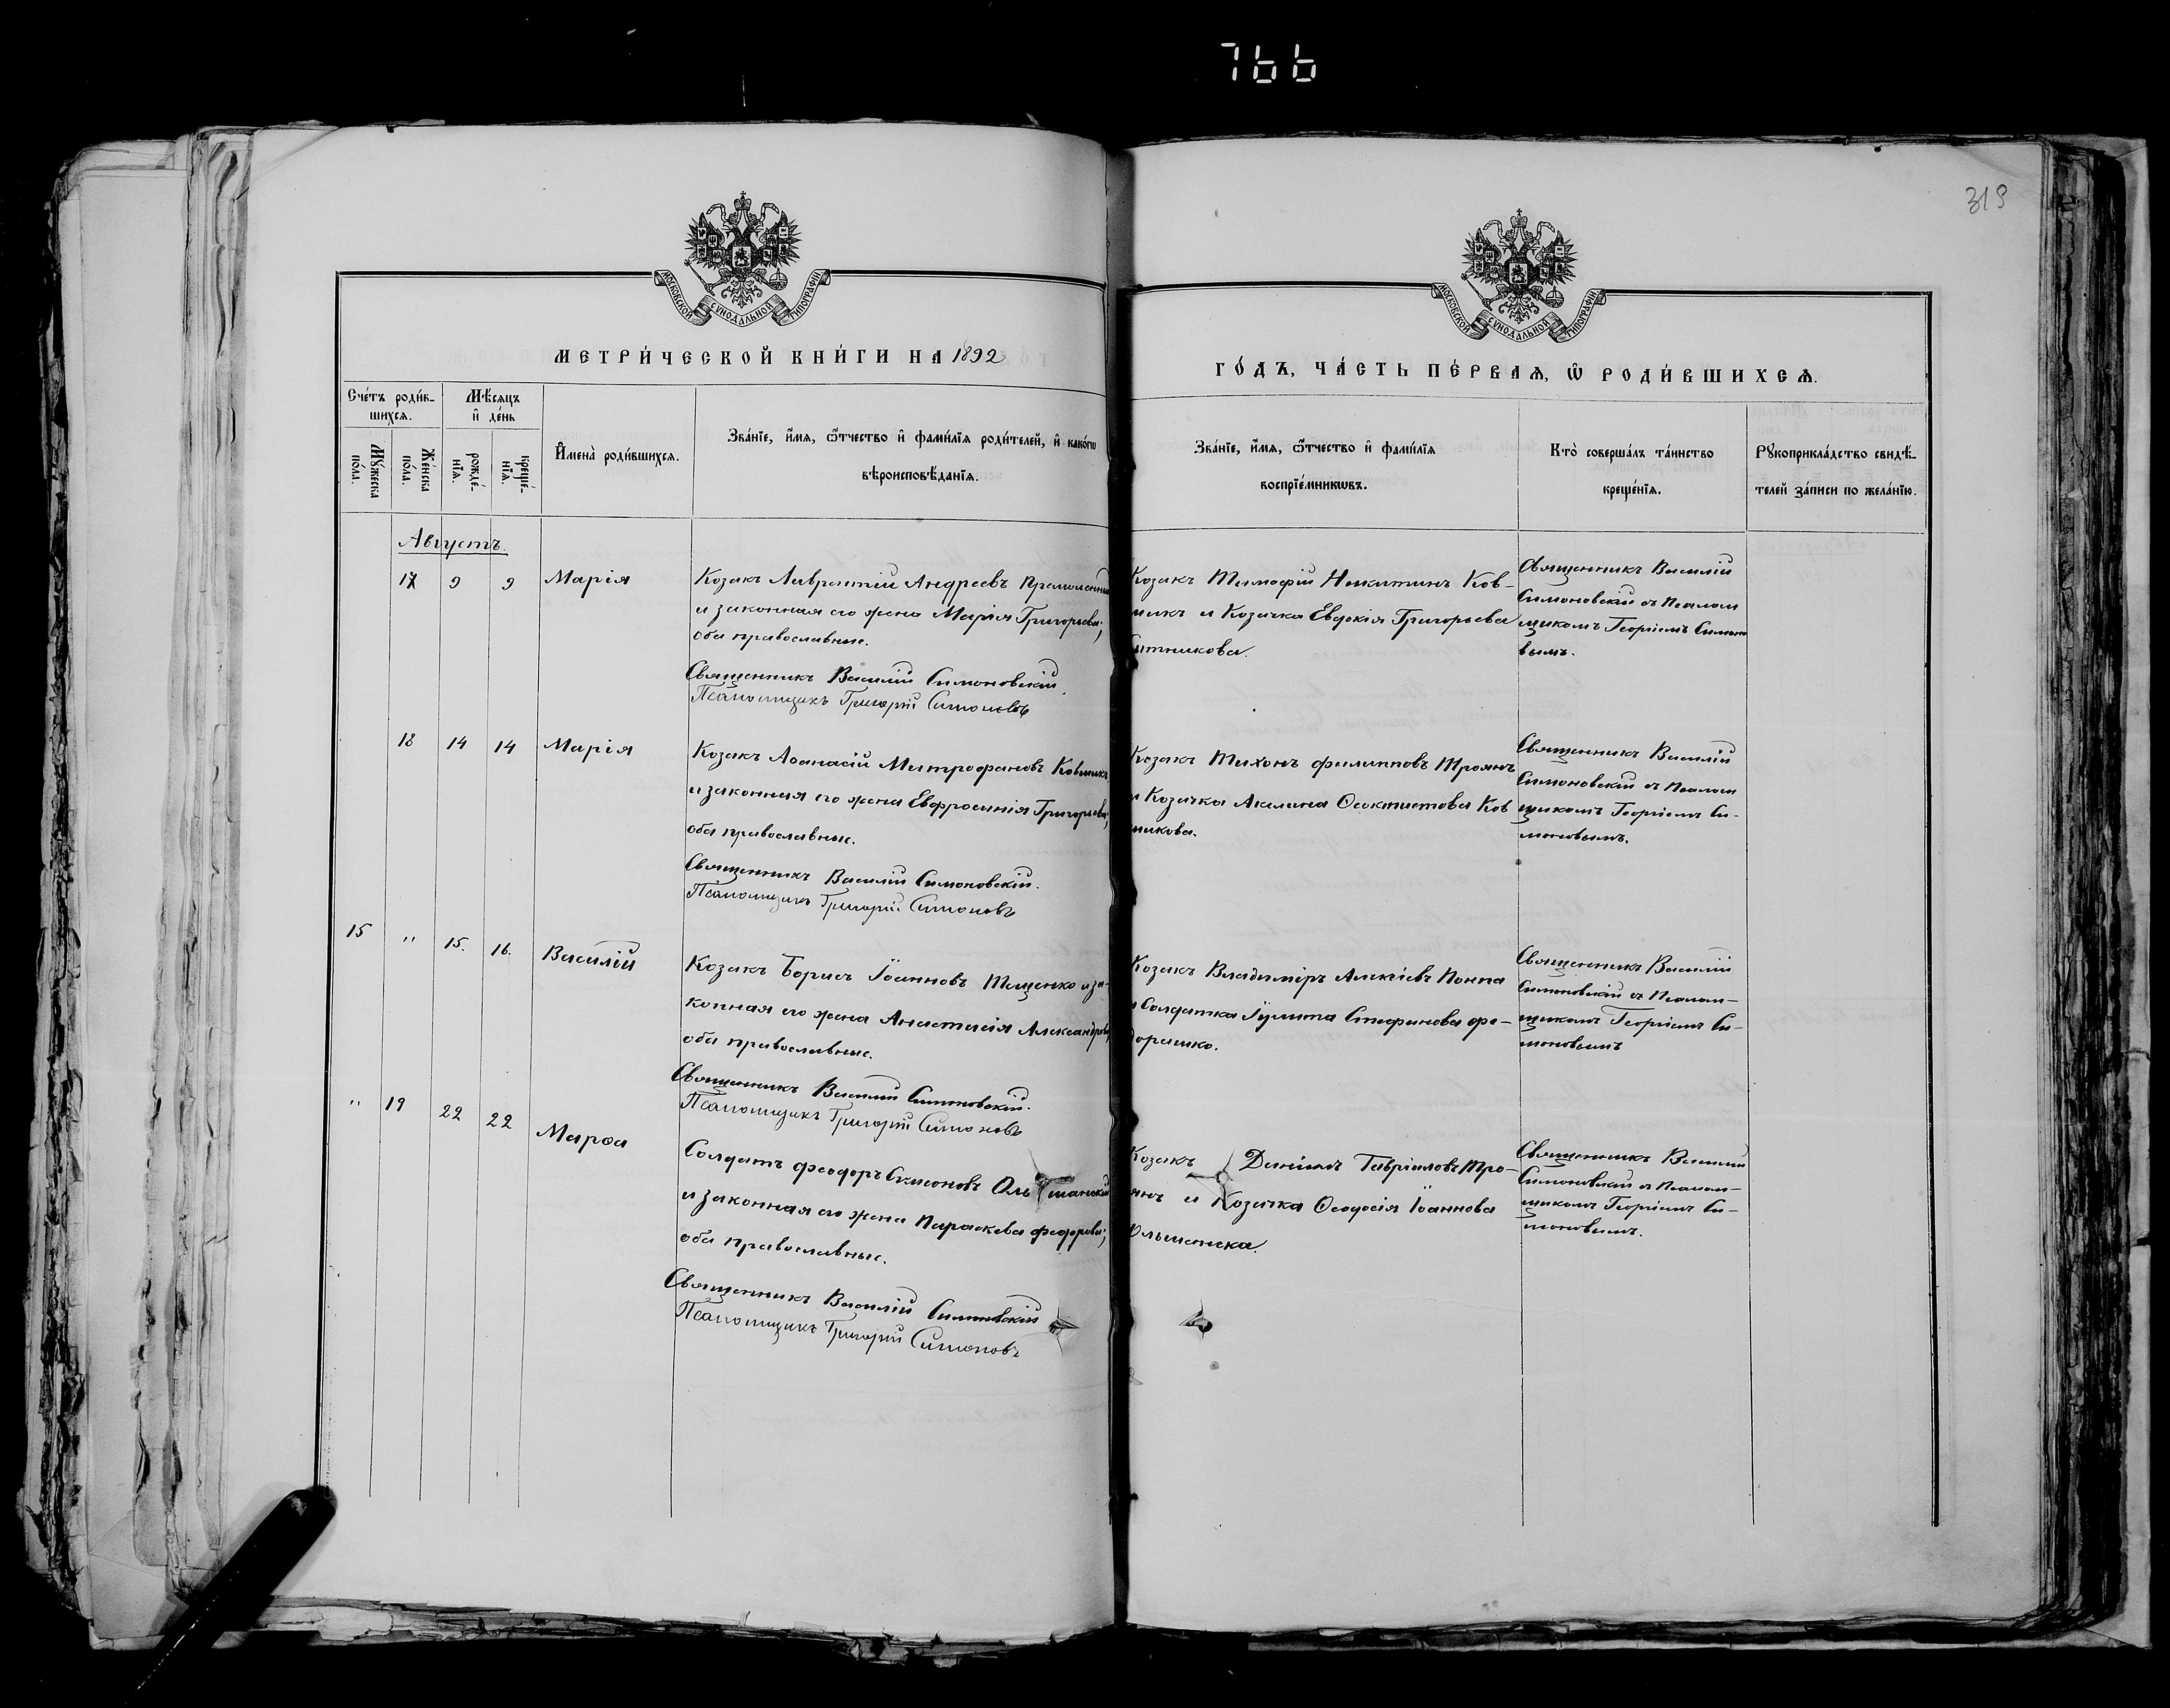 766
319
МОСКОВСКОЙ СѴНОДАЛЬНОЙ ТИПОГРАФІИ
МОСКОВСКОЙ СѴНОДАЛЬНОЙ ТИПОГРАФІИ
МЕТРИ́ЧЕСКОЙ КНИ́ГИ НА 1892
ГО́ДЪ, ЧА́СТЬ ПЕ́РВАѦ, Ѡ҆ РОДИ́ВШИХСѦ.
Сче́тъ роди́в-
шихсѧ.
Мꙋ́жеска по́ла.
Же́нска по́ла.
Мѣ́сѧцъ
и҆ де́нь
рожде́-
нїѧ.
креще́-
нїѧ.
И҆мена̀ роди́вшихсѧ.
Зва́нїе, и҆́мѧ, ѻ҆́тчество и҆ фами́лїѧ роди́телей, и҆ како́гѡ
вѣроисповѣ́данїѧ.
Зва́нїе, и҆́мѧ, ѻ҆́тчество и҆ фами́лїѧ
воспрїе́мникѡвъ.
Кто̀ соверша́лъ та́инство
креще́нїѧ.
Рꙋкоприкла́дство свидѣ́-
телей за́писи по жела́нїю.
Августъ.
17 9 9 Марія
Козакъ Лаврентій Андреевъ
и законная его жена Марія Григорьева;
оба православные.
Священникъ Василій Симоновскій.
Псаломщикъ Григорій Симоновъ
Козакъ Тимофій Никитинъ Ков-
никъ и Козачка Евдокія Григорьева
Ситникова.
Священникъ Василій
Симоновскій съ Псалом
щикомъ Георгіемъ Симоно
вымъ.
18 14 14 Марія
Козакъ Аѳанасій Митрофановъ Ковникъ
и законная его жена Евфросинія Григорьева;
оба православные.
Священникъ Василій Симоновскій.
Псаломщикъ Григорій Симоновъ
Козакъ Тихонъ Филипповъ Троянъ
и Козачка Акилина Ѳеоктистова Ков
никова.
Священникъ Василій
Симоновскій съ Псалом
щикомъ Георгіемъ Си-
моновымъ.
15 " 15. 16. Василій
Козакъ Борисъ Іоанновъ Тищенко и за-
конная его жена Анастасія Александрова,
оба православные.
Священникъ Василій Симоновскій.
Псаломщикъ Григорій Симоновъ
Козакъ Владиміръ Алексіевъ Попка
и Солдатка Іулита Стефанова Фе-
дорашко.
Священникъ Василій
Симоновскій съ Псалом-
щикомъ Георгіемъ Си-
моновымъ
" 19 22 22 Марѳа
Солдатъ Феодоръ Симоновъ Ольшанскій
и законная его жена Параскева Федорова;
оба православные.
Священникъ Василій Симоновскій
Псаломщикъ Григорій Симоновъ
Козакъ Даніилъ Гавріиловъ Тро-
янъ и Козачка Ѳеодосія Іоаннова
Ольшанска.
Священникъ Василій
Симоновскій съ Псалом-
щикомъ Георгіемъ Си-
моновымъ.